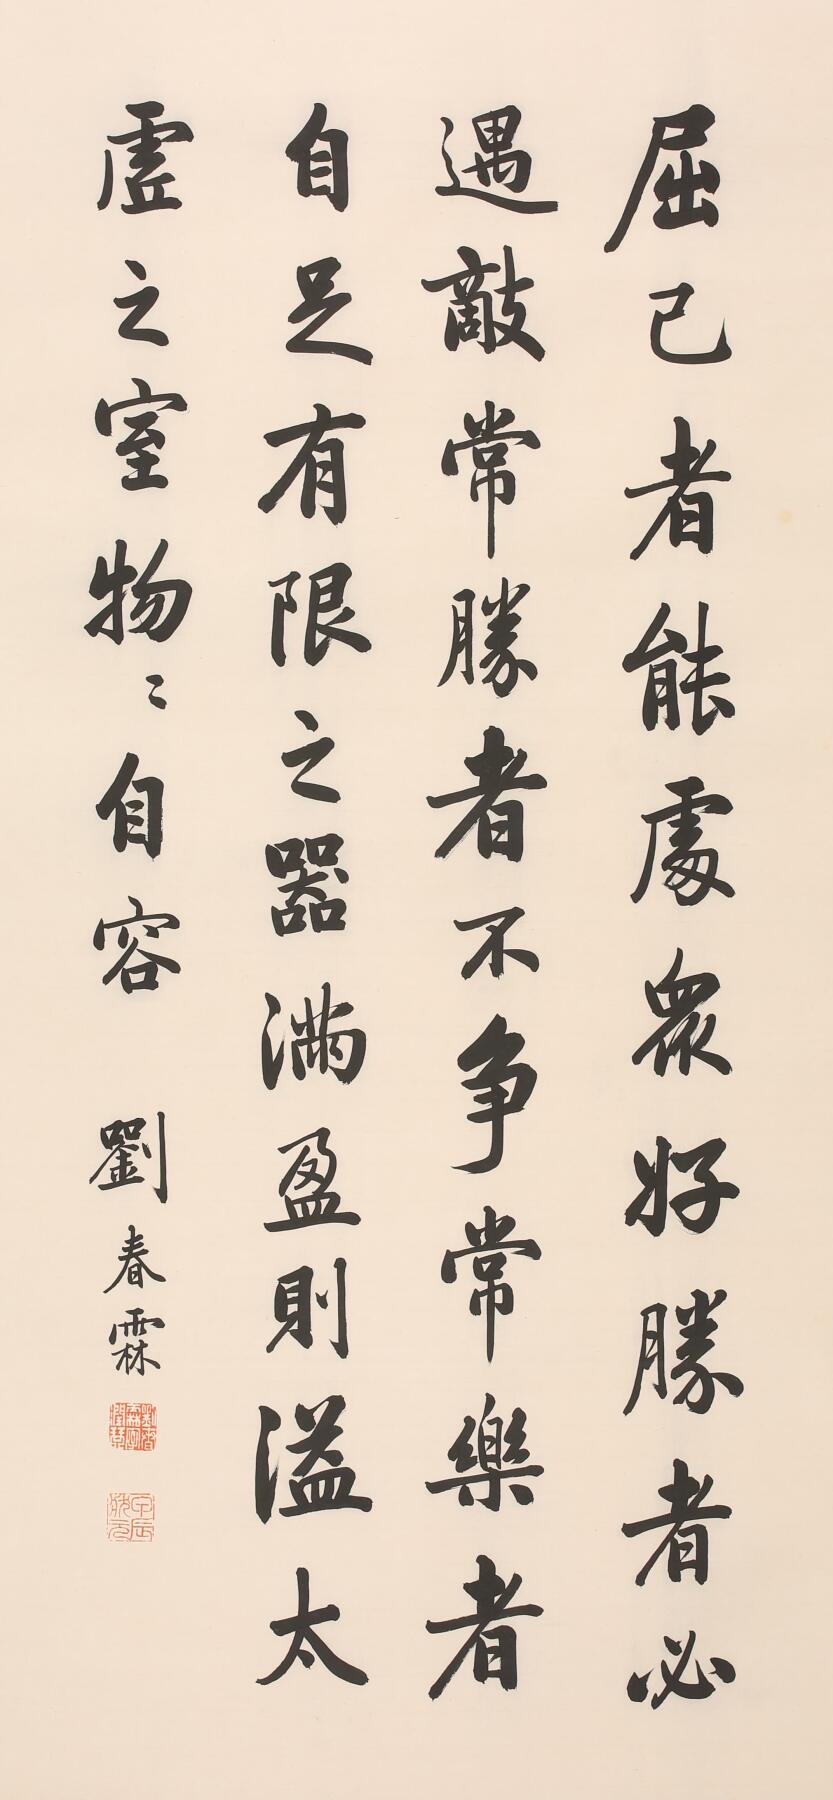 屈己者能處衆好勝者必
遇敵常勝者不争常樂者
自足有限之器滿盈則溢太
虛之室物〻自容
劉春霖